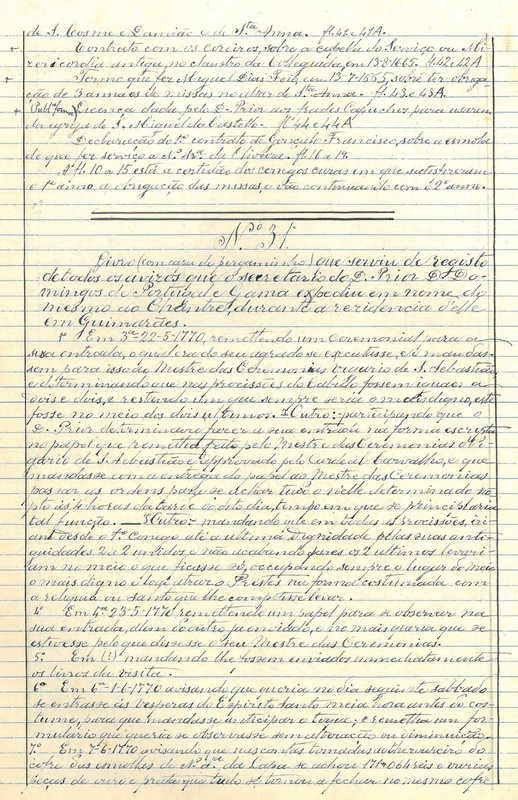 de S. Cosme e Damião e de Sta Anna. fl. 42 e 47A.
+ Contrato com os coreiros, sobre a cubella do Serviço ou Mi-
zericordia antiga, no claustro da Collegiada, em 13-8-1665. fl. 42 e 42A
+ Termo que fez Miguel Dias Feit, em 13-7-1655, sobre ter obriga-
ção de 3 annaes de missas no altar de Sta Anna. fl. 43 e 43A
+ (Publ. forma) Licença dada pelo D. Prior aos frades Capuchos para usarem
da egreja de S. Miguel do Castello. fl. 44 e 44A
Declaração do 1º contrato de Gonçalo Francisco, sobre a esmola
de que fez serviço a N.ª Srª da Oliveira. fl. 16 a 19.
A fl. 10 a 15 está a certidão dos conegos curas em que satisfizeram
o 1º anno a obrigação das missas, e vão continuando com o 2º anno.
N.º 31
Livro (com capa de pergaminho) que serviu de registo
de todos os avizos que o secretario de D. Prior D. Do-
mingos de Portugal e Gama expediu em nome do
mesmo ao Chantre, durante a rezidencia d'elle
em Guimarães.
1º Em 3ª-22-5-1770, remettendo um Ceremonial para a
sua entrada, o qual era do seu agrado se executasse, e o mandas-
sem para isso ao Mestre das Ceremonias vigario de S. Sebastião
e determinando que nas procissões do Cabido fossem iguaes a
dois e dois, e restando um que sempre seria o mais digno, este
fosse no meio dos dois ultimos. — Outro: participando que o
D. Prior determinava fazer a sua entrada na forma escrita
no papel que remettia feito pelo Mestre das Ceremonias o Vi-
gario de S. Sebastião e approvado pelo Cardeal Carvalho, e que
mandasse com a entrega do papel ao Mestre das Ceremonias
passar as ordens para se achar tudo o nelle determinado
ás 4 horas da tarde do dito dia, tempo em que se principiaria
tal função. — Outro: mandando que em todas as Procissões, iri-
am desde o 1º Conego até a ultima Dignidade pelas suas anti-
guidades 2 e 2 unidos e não acabando pares os 2 ultimos levari-
am no meio o que ficasse só, occupando sempre o lugar do meio
o mais digno e logo atraz o Preste na forma costumada com
a reliquia ou santo que lhe competisse levar.
4º Em 4ª-23-5-1770 remettendo um papel para se observar na
sua entrada, além do outro já enviado, e no mais queria que se
estivesse pelo que dissesse o seu Mestre das Ceremonias.
5º Em (?) mandando lhe fossem enviados immediatamente
os livros da visita.
6º Em 6ª-1-6-1770 avisando que queria no dia seguinte sabbado
se entrasse ás vesperas do Espirito Santo meia hora antes do cos-
tume, para que mandasse anticipar o toque; e remettia um for-
mulario que queria se observasse sem alteração ou diminuição.
7º Em 7-6-1770 avisando que nas contas tomadas
cofre das esmolas de N.ª Srª da Lapa se achou 171$064 réis e varias
peças de ouro e prata que tudo se tornou a fechar no mesmo cofre